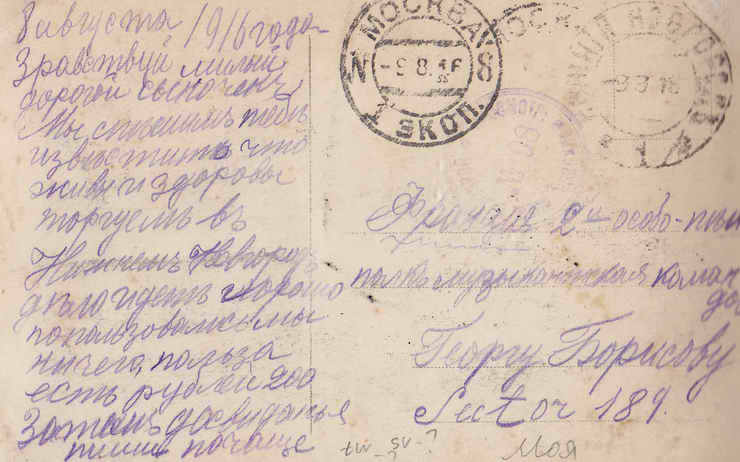 8 августа 1916 года
Здравствуй милый
дорогой сыночекъ
Мы спешимъ тебя
известить что
живы и здоровы
торгуемъ въ
Нижнемъ Новгороде
дѣло идетъ хорошо
попользовались мы
ничего, польза
есть рублей 200
Затемъ досвиданья
пиши почаще
МОСКВА
8
-9.8.16
1 ЭКСП.
МОСК
НОВГОРОД
-9 8 16
1
Франція 2й особо-пѣш
полкъ музыкантская коман
да
Георгу Борисову
Sector 189.
Моя